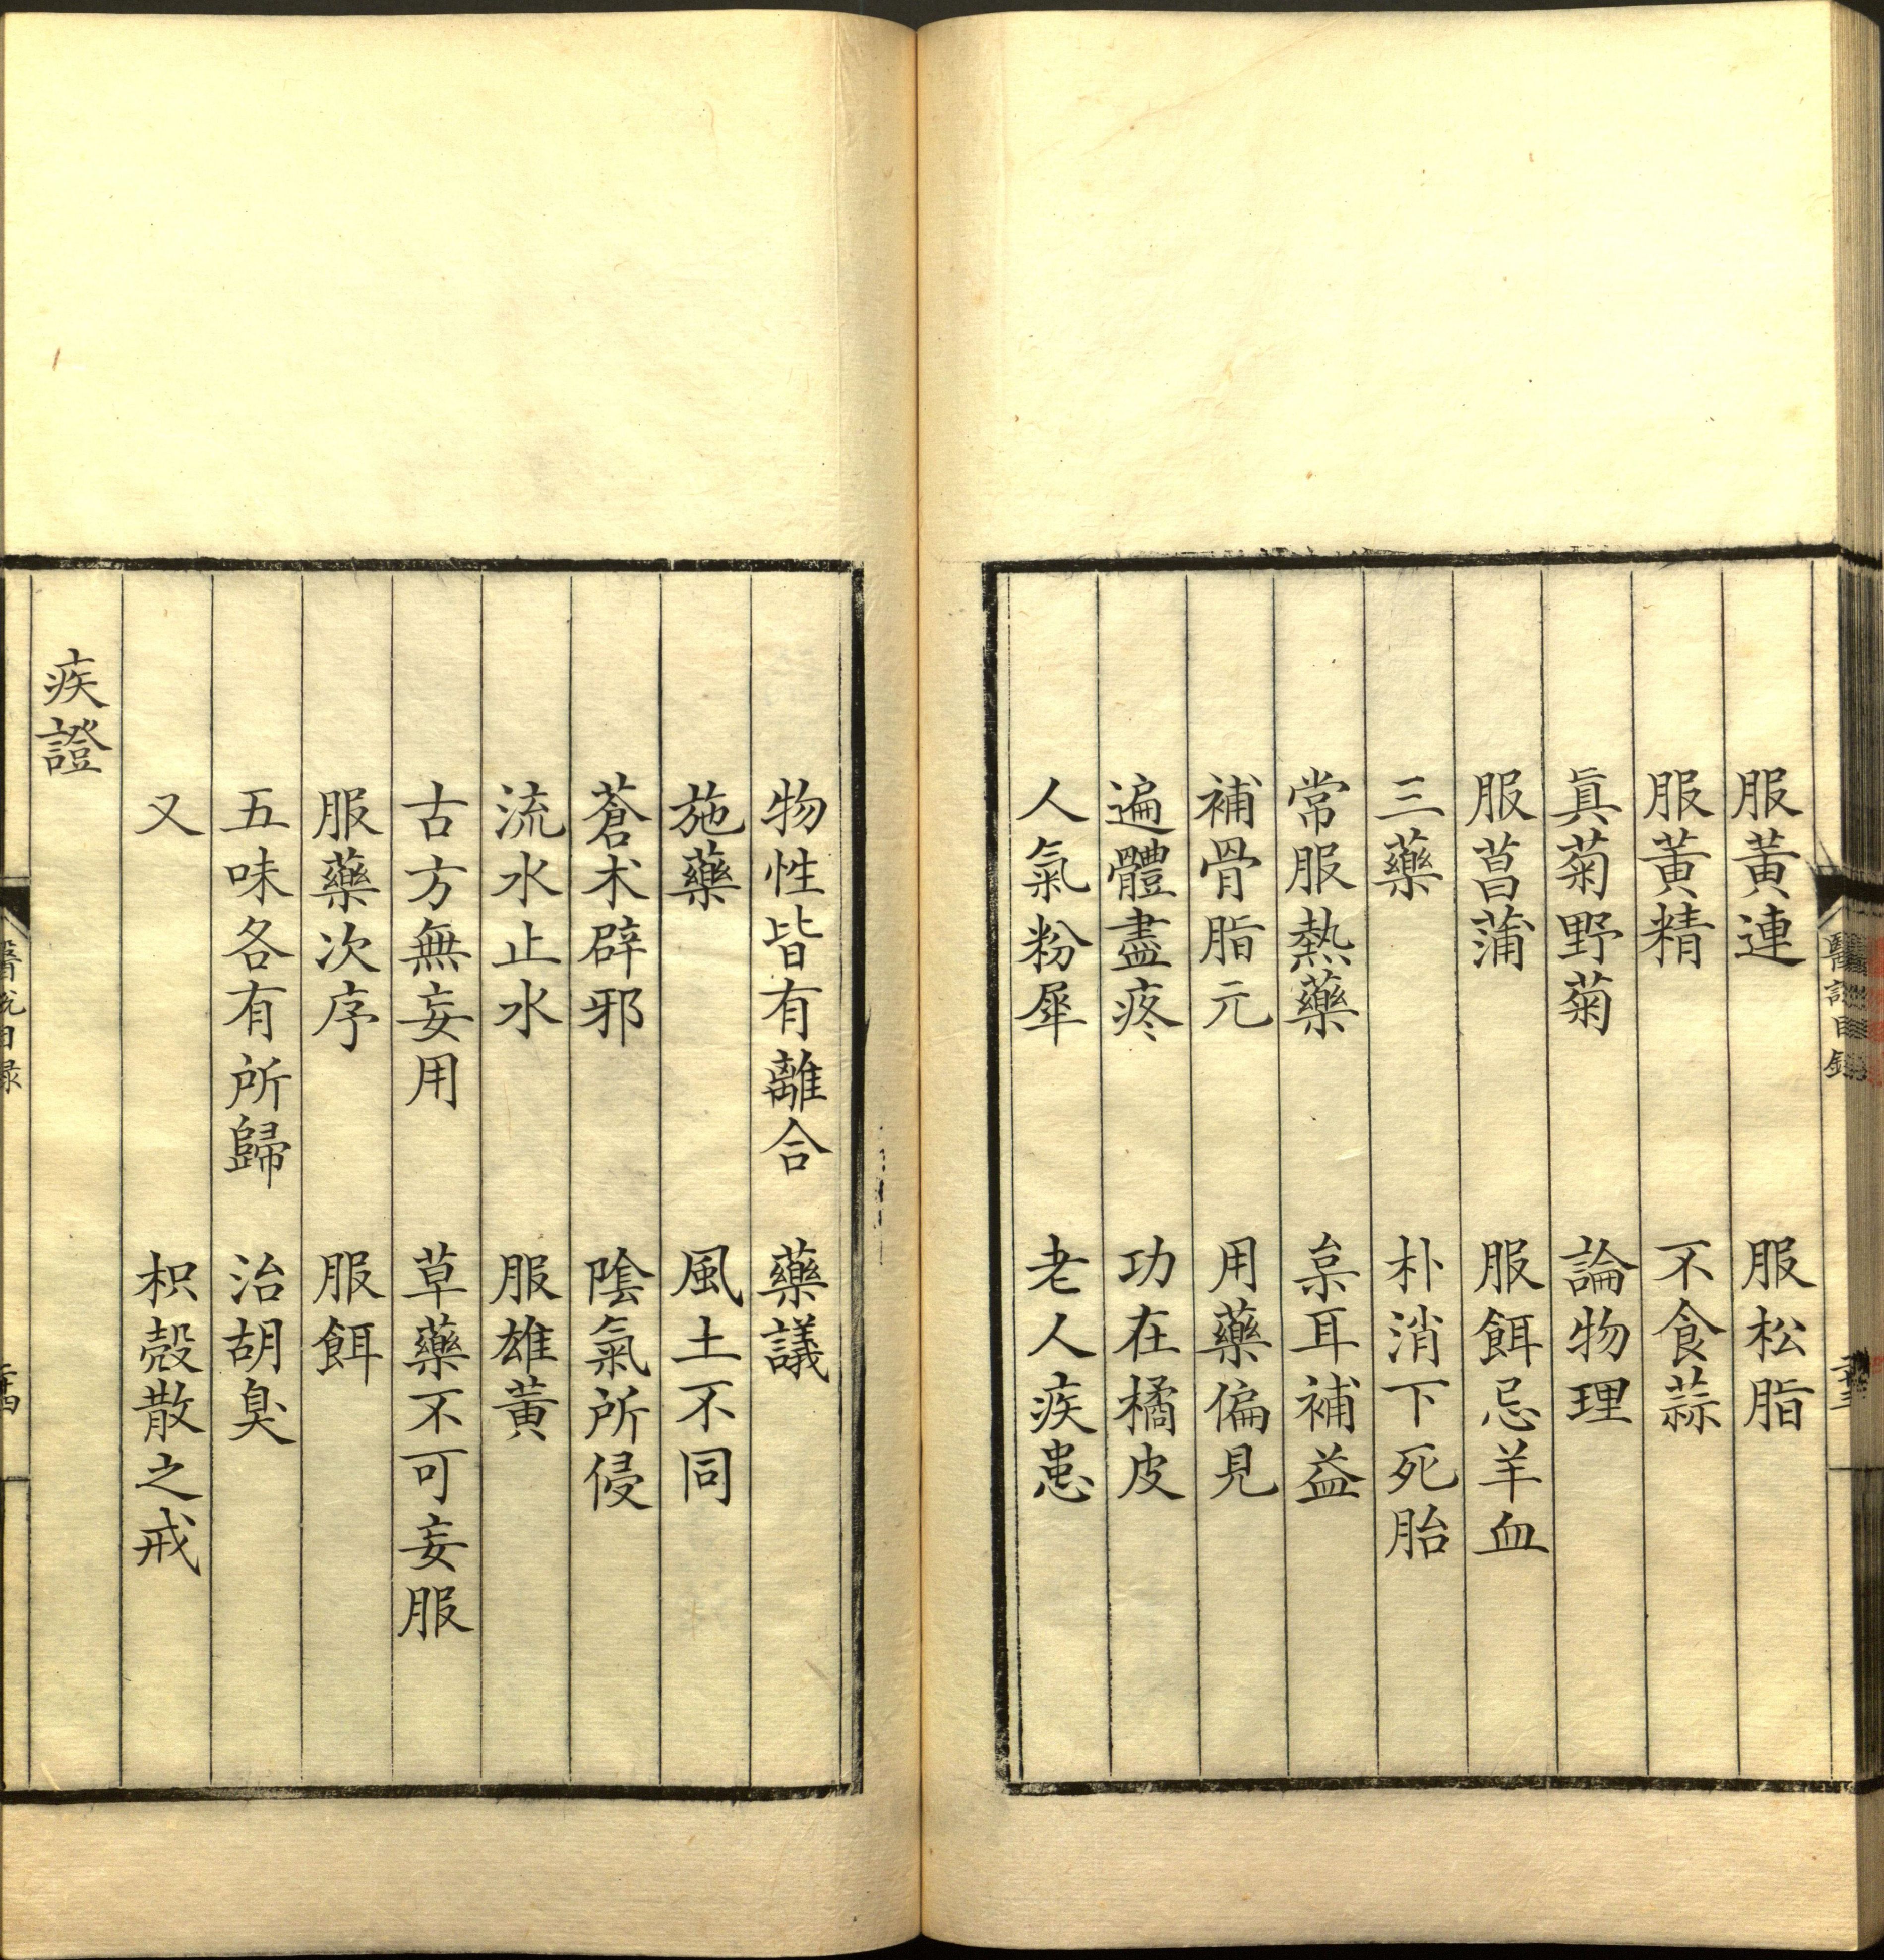 服黃連　服松脂
服黃精　不食蒜
眞菊野菊　論物理
服菖蒲　服餌忌羊血
三藥　朴消下死胎
常服熱藥　枲耳補益
補骨脂元　用藥偏見
遍體盡疼　功在橘皮
人氣粉犀　老人疾患
物性皆有離合　藥議
施藥　風土不同
蒼术辟邪　陰氣所侵
流水止水　服雄黃
古方無妄用　草藥不可妄服
服藥次序　服餌
五味各有所歸　治胡臭
又　枳殼散之戒
疾證
醫說目錄